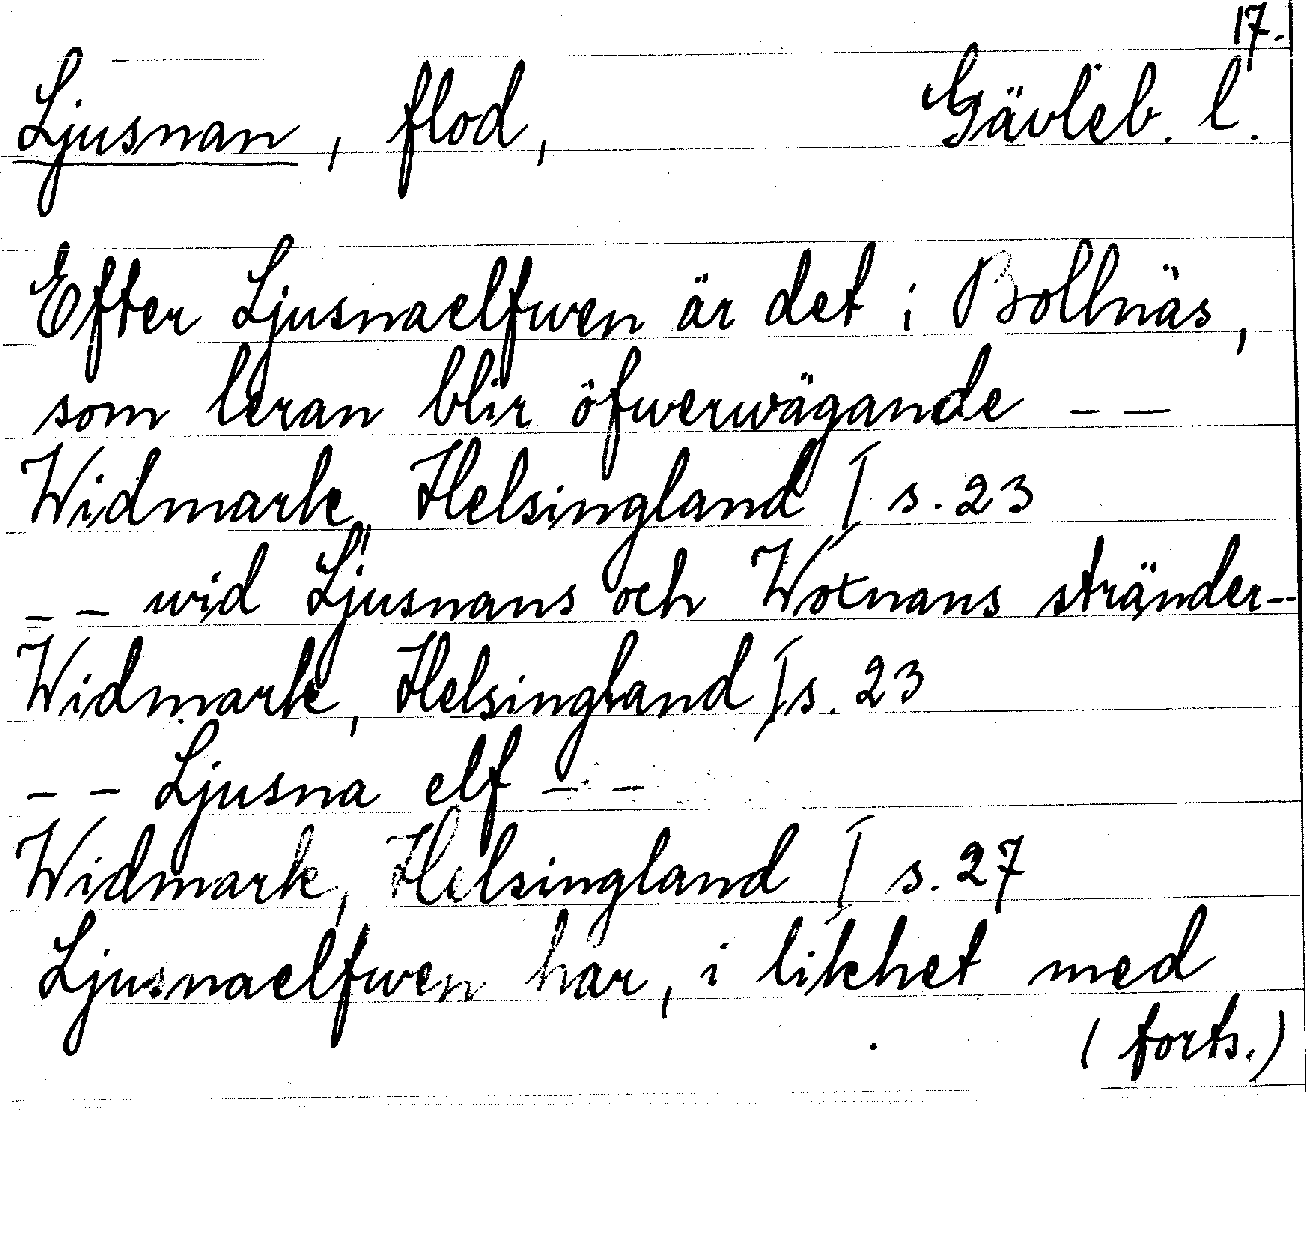 17.
Ljusnan, flod, Gävleb. l.
Efter Ljusnaelfwen är det i Bollnäs,
som leran blir öfwerwägande – –
Widmark, Helsingland I s. 23
– – wid Ljusnans och Woxnans stränder --
Widmark, Helsingland I s. 23
– – Ljusna elf – –
Widmark, Helsingland I s. 27
Ljusnaelfwen har, i likhet med
(forts.)